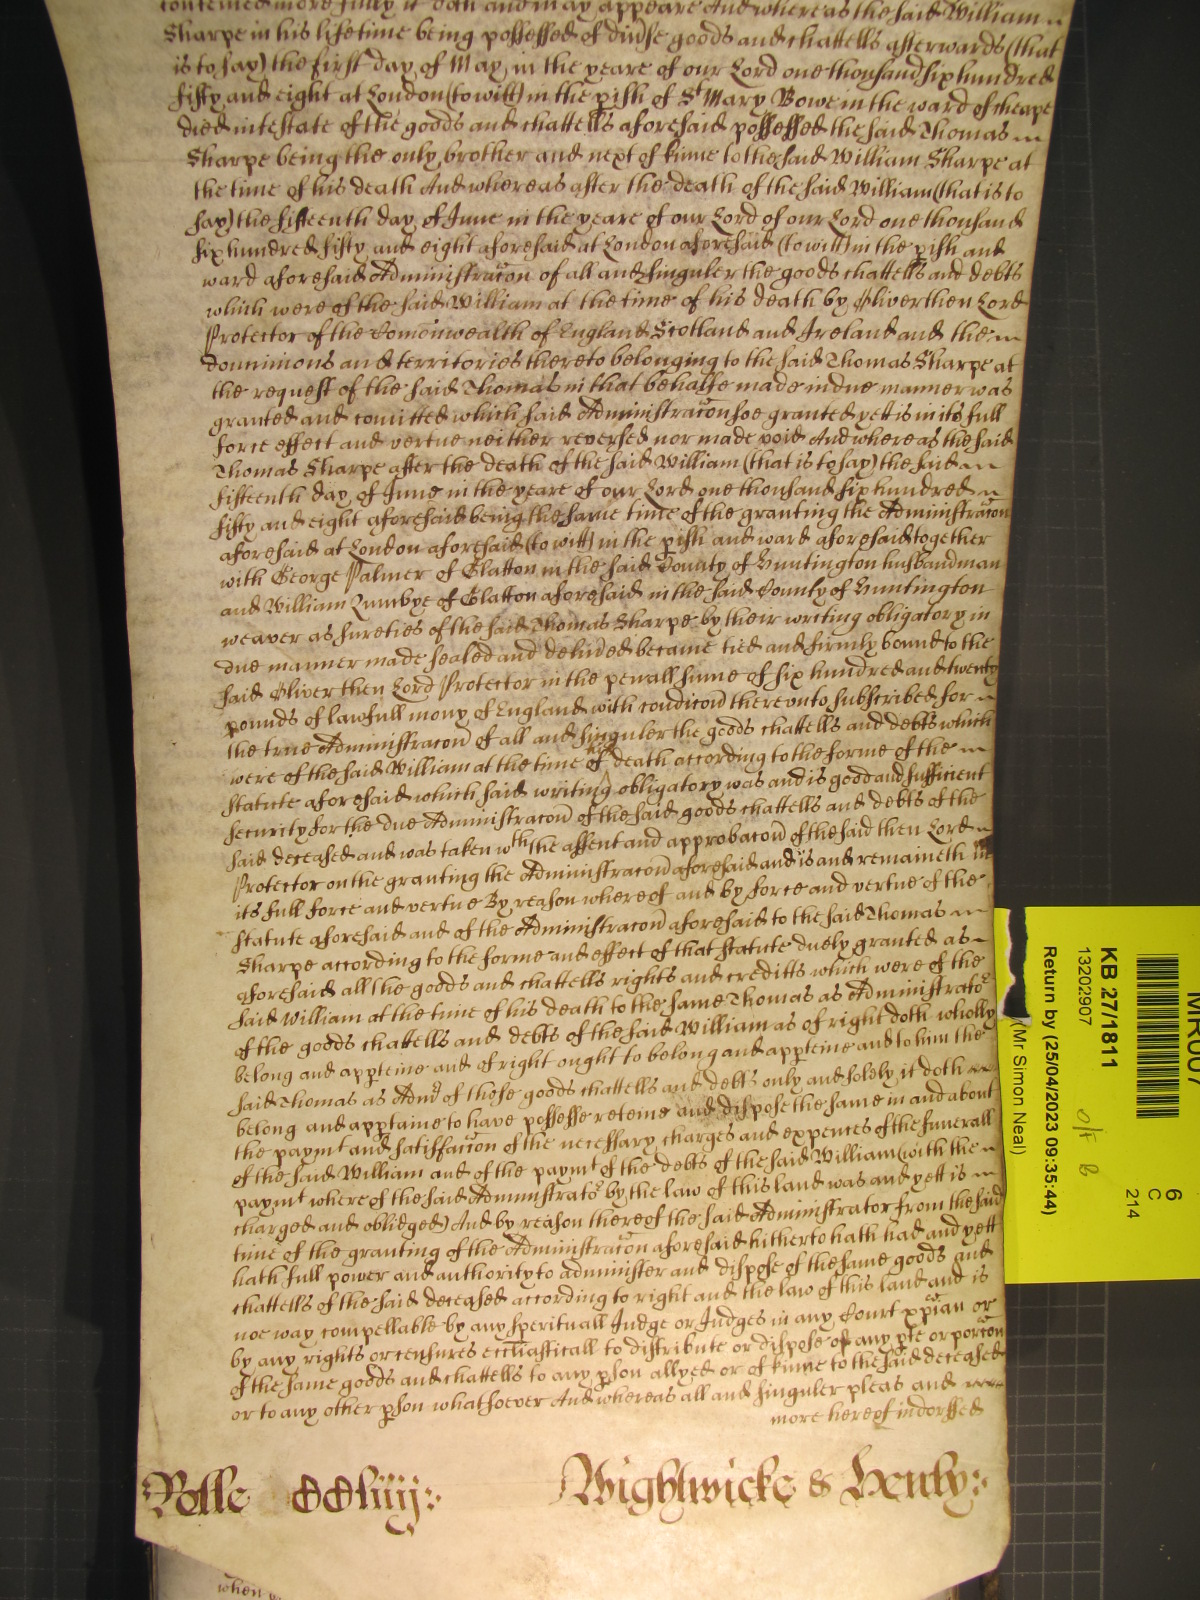 contained more fully it doth and may appeare And whereas the said William
Sharpe in his lifetime being possessed of divse goods and chattells afterwards (that
is to say) the first day of May in the yeare of our Lord one thousand six hundred
fifty and eight at London (to witt) in the pish of St Mary Bowe in the ward of cheape
died intestate of the goods and chattells aforesaid possessed the said Thomas
Sharpe being the only brother and next of kinne to the said William Sharpe at
the time of his death And whereas after the death of the said William (that is to
say) the fifteenth day of June in the yeare of our Lord of our Lord one thousand
six hundred fifty and eight aforesaid at London aforesaid (to witt) in the pish and
ward aforesaid Administracon of all and singuler the goods chattells and debts
which were of the said William at the time of his death by Oliver then Lord
Protector of the Comonwealth of England Scotland and Ireland and the
dominions and territories thereto belonging to the said Thomas Sharpe at
the request of the said Thomas in that behalfe made in due manner was
granted and comitted which said Administracon soe granted yett is in its full
force effect and vertue neither reversed nor made void And whereas the said
Thomas Sharpe after the death of the said William (that is to say) the said
fifteenth day of June in the yeare of our Lord one thousand six hundred
fifty and eight aforesaid being the same time of the granting the Administracon
aforesaid at London aforesaid (to witt) in the pish and ward aforesaid together
with George Palmer of Glatton in the said County of Huntington husbandman
and William of Glatton aforesaid in the said County of Huntington
weaver as sureties of the said Thomas Sharpe by their writing obligatory in
due manner made sealed and delived became tied and firmly bound to the
said Oliver then Lord Protector in the penall sume of six hundred and twenty
pounds of lawfull mony of England with condicon thereunto subscribed for
the true Administracon of all and singuler the goods chattells and debts which
were of the said William at the time of his death according to the forme of the
Statute aforesaid which said writing obligatory was and is good and sufficient
security for the due Administracon of the said goods chattells and debts of the
said deceased and was taken wth the assent and approbacon of the said then Lord
Protector on the granting the Administracon aforesaid and is and remaineth in
its full force and vertue By reason whereof and by force and vertue of the
Statute aforesaid and of the Administracon aforesaid to the said Thomas
Sharpe according to the forme and effect of that Statute duely granted as
aforesaid all the goods and chattells rights and creditts which were of the
said William at the time of his death to the same Thomas as Administrator
of the goods chattells and debts of the said William as of right doth wholly
belong and appteine and of right ought to belong and appteine and to him the
said Thomas as Admr of those goods chattells and debts only and solely it doth
belong and apptaine to have possesse reteine and dispose the same in and about
the paymt and satisfaccon of the necessary charges and expences of the funerall
of the said William and of the paymt of the debts of the said William (with the
paymt whereof the said Administrator by the law of this land was and yett is
charged and obliged) And by reason thereof the said Administrator from the said
time of the granting of the Administracon aforesaid hitherto hath had and yett
hath full power and authority to administer and dispose of the same goods and
chattells of the said deceased according to right and the law of this land and is
noe way compellable by any sperituall Judge or Judges in any Court xpian or
by any rights or censures eccliasticall to distribute or dispose of any pte or porcon
of the same goods and chattells to any pson allyed or of kinne to the said deceased
or to any other pson whatsoever And whereas all and singuler pleas and
more hereof indorssed
Rolle CCliiij:
Wightwicke & Henly:
when
MR007
KB 27/1811
13202907
Return by (25/04/2023 09:35:44)
(Mr Simon Neal)
6
C
214